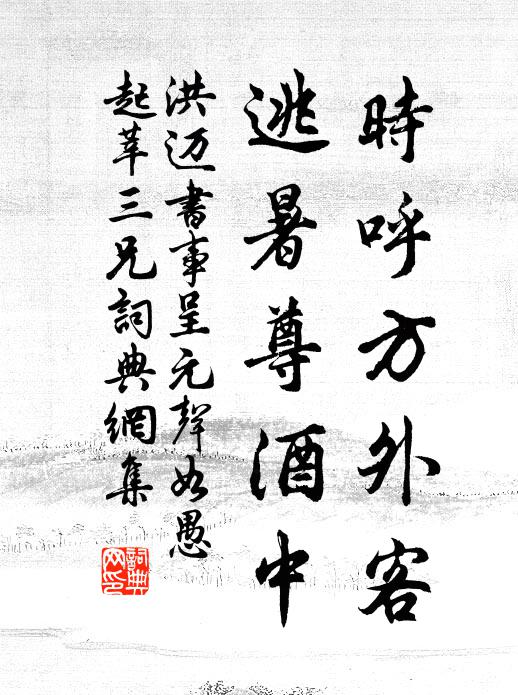 時呼方外客
逃暑尊酒中
洪迈書事呈元聲如愚
起莘三兄詞典網集
詞典
网印